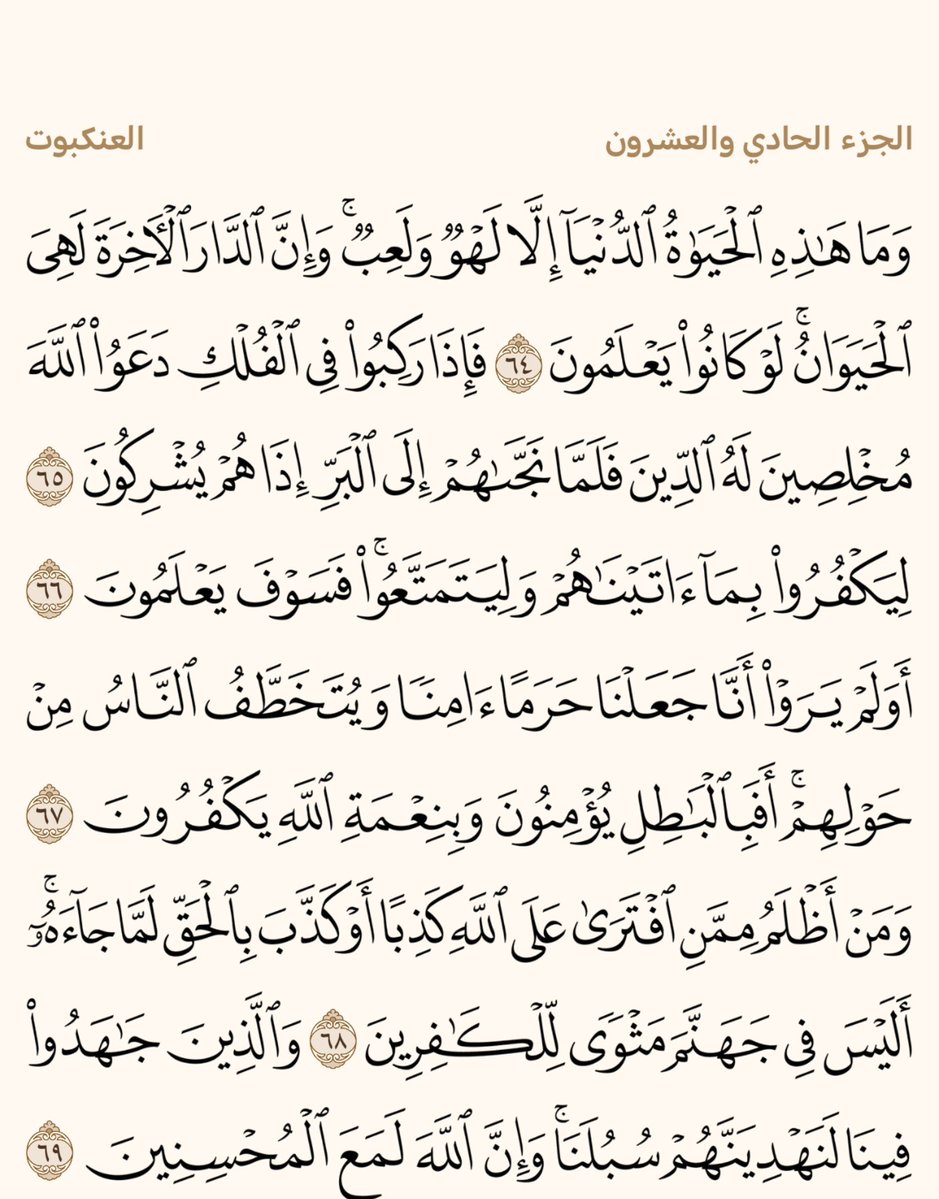 الجزء الحادي والعشرون
العنكبوت
وَمَا هَٰذِهِ ٱلْحَيَوٰةُ ٱلدُّنْيَآ إِلَّا لَهْوٌۭ وَلَعِبٌۭ ۚ وَإِنَّ ٱلدَّارَ ٱلْـَٔاخِرَةَ لَهِىَ
ٱلْحَيَوَانُ ۚ لَوْ كَانُوا۟ يَعْلَمُونَ ٦٤ فَإِذَا رَكِبُوا۟ فِى ٱلْفُلْكِ دَعَوُا۟ ٱللَّهَ
مُخْلِصِينَ لَهُ ٱلدِّينَ فَلَمَّا نَجَّىٰهُمْ إِلَى ٱلْبَرِّ إِذَا هُمْ يُشْرِكُونَ ٦٥
لِيَكْفُرُوا۟ بِمَآ ءَاتَيْنَٰهُمْ وَلِيَتَمَتَّعُوا۟ ۚ فَسَوْفَ يَعْلَمُونَ ٦٦
أَوَلَمْ يَرَوْا۟ أَنَّا جَعَلْنَا حَرَمًا ءَامِنًۭا وَيُتَخَطَّفُ ٱلنَّاسُ مِنْ
حَوْلِهِمْ ۚ أَفَبِٱلْبَٰطِلِ يُؤْمِنُونَ وَبِنِعْمَةِ ٱللَّهِ يَكْفُرُونَ ٦٧
وَمَنْ أَظْلَمُ مِمَّنِ ٱفْتَرَىٰ عَلَى ٱللَّهِ كَذِبًا أَوْ كَذَّبَ بِٱلْحَقِّ لَمَّا جَآءَهُۥٓ ۚ
أَلَيْسَ فِى جَهَنَّمَ مَثْوًۭى لِّلْكَٰفِرِينَ ٦٨ وَٱلَّذِينَ جَٰهَدُوا۟
فِينَا لَنَهْدِيَنَّهُمْ سُبُلَنَا ۚ وَإِنَّ ٱللَّهَ لَمَعَ ٱلْمُحْسِنِينَ ٦٩